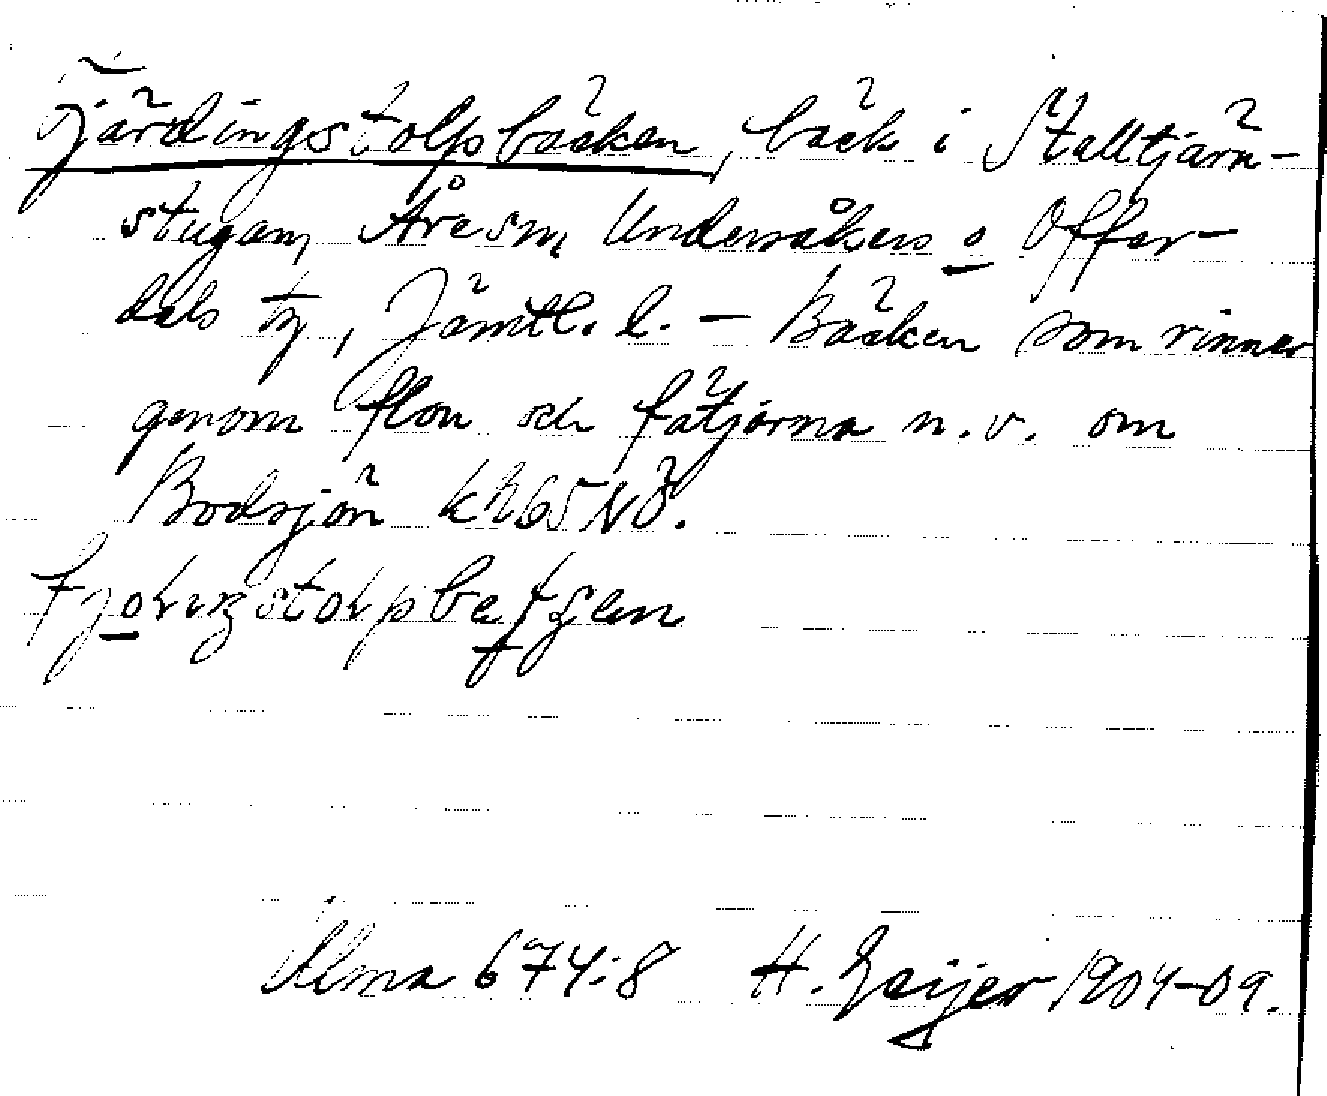 Fjärdingstolpsbäcken, bäck i Stalltjärn-
stugan, Åre sn, Undersåkers o Offer-
dals tg, Jämtl. l. – Bäcken som rinner
genom flon och fåtjärna n.v. om
Bodsjön kh65NÖ.
Ulma 674:8 H. Geijer 1904-09.